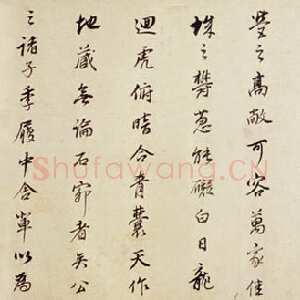 塋之高敞可容萬家佳
城之鬱蔥能礙白日龍
迴虎俯暗合青囊天作
地藏無論石槨者矣公
之諸子季履中含軰以爲
Shufawang.cn